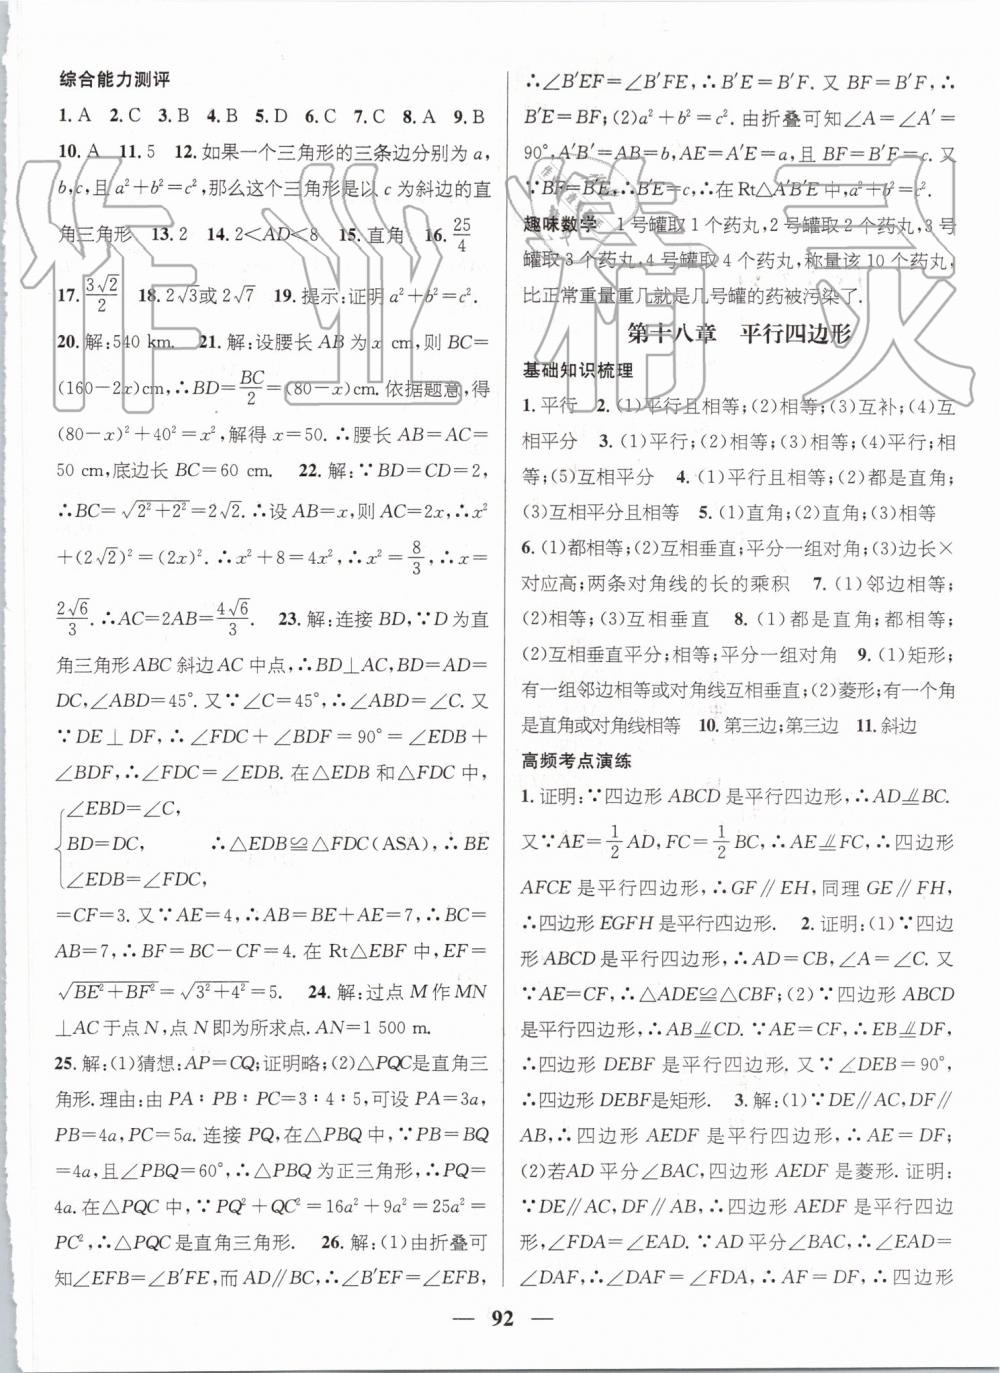 综合能力测评
1. A  2. C  3. B  4. B  5. D  6. C  7. C  8. A  9. B
10. A  11. 5  12. 如果一个三角形的三条边分别为 a,
b,c,且 a²+b²=c²,那么这个三角形是以 c 为斜边的直
角三角形  13. 2  14. 2<AD<8  15. 直角  16. 25/4
17. 3√2/2  18. 2√3或2√7  19. 提示:证明 a²+b²=c².
20. 解:540 km.  21. 解:设腰长 AB 为 x cm,则 BC=
(160-2x)cm,∴BD=BC/2=(80-x)cm.依据题意,得
(80-x)²+40²=x²,解得 x=50.∴腰长 AB=AC=
50 cm,底边长 BC=60 cm.  22. 解:∵BD=CD=2,
∴BC=√(2²+2²)=2√2.∴设 AB=x,则 AC=2x,∴x²
+(2√2)²=(2x)².∴x²+8=4x²,∴x²=8/3,∴x=
2√6/3.∴AC=2AB=4√6/3.  23. 解:连接 BD,∵D为直
角三角形 ABC 斜边 AC 中点,∴BD⊥AC,BD=AD=
DC,∠ABD=45°.又∵∠C=45°,∴∠ABD=∠C.又
∵DE⊥DF,∴∠FDC+∠BDF=90°=∠EDB+
∠BDF,∴∠FDC=∠EDB.在△EDB 和△FDC 中,
∠EBD=∠C,
BD=DC, ∴△EDB≌△FDC(ASA),∴BE
∠EDB=∠FDC,
=CF=3.又∵AE=4,∴AB=BE+AE=7,∴BC=
AB=7,∴BF=BC-CF=4.在 Rt△EBF 中,EF=
√(BE²+BF²)=√(3²+4²)=5.  24. 解:过点 M 作 MN
⊥AC于点 N,点 N 即为所求点.AN=1 500 m.
25. 解:(1)猜想:AP=CQ;证明略;(2)△PQC是直角三
角形.理由:由 PA∶PB∶PC=3∶4∶5,可设 PA=3a,
PB=4a,PC=5a.连接 PQ,在△PBQ 中,∵PB=BQ
=4a,且∠PBQ=60°,∴△PBQ 为正三角形,∴PQ=
4a.在△PQC 中,∵PQ²+QC²=16a²+9a²=25a²=
PC²,∴△PQC是直角三角形.  26. 解:(1)由折叠可
知∠EFB=∠B′FE,而 AD∥BC,∴∠B′EF=∠EFB,
∴∠B′EF=∠B′FE,∴B′E=B′F.又 BF=B′F,∴
B′E=BF;(2)a²+b²=c².由折叠可知∠A=∠A′=
90°,A′B′=AB=b,AE=A′E=a,且 B′F=BF=c.又
∵BF=B′E,∴B′E=c,∴在 Rt△A′B′E 中,a²+b²=c².
趣味数学  1号罐取1个药丸,2号罐取2个药丸,3号
罐取3个药丸,4号罐取4个药丸,称量该10个药丸,
比正常重量重几就是几号罐的药被污染了.
第十八章  平行四边形
基础知识梳理
1. 平行  2. (1)平行且相等;(2)相等;(3)互补;(4)互
相平分  3. (1)平行;(2)相等;(3)相等;(4)平行;相
等;(5)互相平分  4. (1)平行且相等;(2)都是直角;
(3)互相平分且相等  5. (1)直角;(2)直角;(3)相等
6. (1)都相等;(2)互相垂直;平分一组对角;(3)边长×
对应高;两条对角线的长的乘积  7. (1)邻边相等;
(2)相等;(3)互相垂直  8. (1)都是直角;都相等;
(2)互相垂直平分;相等;平分一组对角  9. (1)矩形;
有一组邻边相等或对角线互相垂直;(2)菱形;有一个角
是直角或对角线相等  10. 第三边;第三边  11. 斜边
高频考点演练
1. 证明:∵四边形 ABCD 是平行四边形,∴AD⫽BC.
又∵AE=1/2 AD,FC=1/2 BC,∴AE⫽FC,∴四边形
AFCE 是平行四边形,∴GF∥EH,同理 GE∥FH,
∴四边形EGFH是平行四边形.  2. 证明:(1)∵四边
形 ABCD 是平行四边形,∴AD=CB,∠A=∠C.又
∵AE=CF,∴△ADE≌△CBF;(2)∵四边形 ABCD
是平行四边形,∴AB⫽CD.∵AE=CF,∴EB⫽DF,
∴四边形 DEBF 是平行四边形.又∵∠DEB=90°,
∴四边形 DEBF是矩形.  3. 解:(1)∵DE∥AC,DF∥
AB,∴四边形 AEDF 是平行四边形,∴AE=DF;
(2)若AD 平分∠BAC,四边形 AEDF 是菱形.证明:
∵DE∥AC,DF∥AB,∴四边形 AEDF 是平行四边
形,∴∠FDA=∠EAD.∵AD 平分∠BAC,∴∠EAD=
∠DAF,∴∠DAF=∠FDA,∴AF=DF,∴四边形
— 92 —
作业精灵